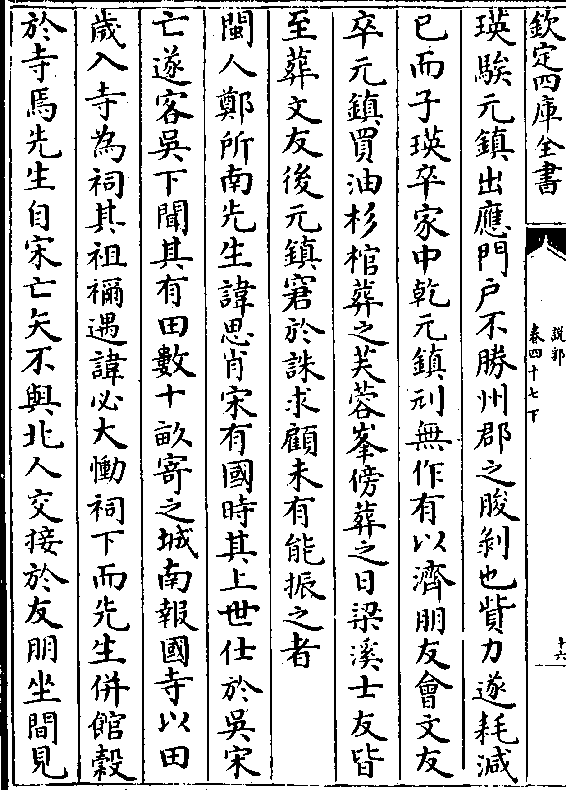 欽定四庫全書
說郛
卷四十七下
十六
瑛騃元鎮出應門戸不勝州郡之朘剥也貲力遂耗減
已而子瑛卒家中乾元鎮刓無作有以濟朋友會文友
卒元鎮買油杉棺葬之芙蓉峯傍葬之日梁溪士友皆
至葬文友後元鎮窘於誅求顧未有能振之者
閩人鄭所南先生諱思肖宋有國時其上世仕於吳宋
亡遂客吳下聞其有田數十畝寄之城南報國寺以田
歲入寺為祠其祖禰遇諱必大慟祠下而先生併館穀
於寺焉先生自宋亡矢不與北人交接於友朋坐間見